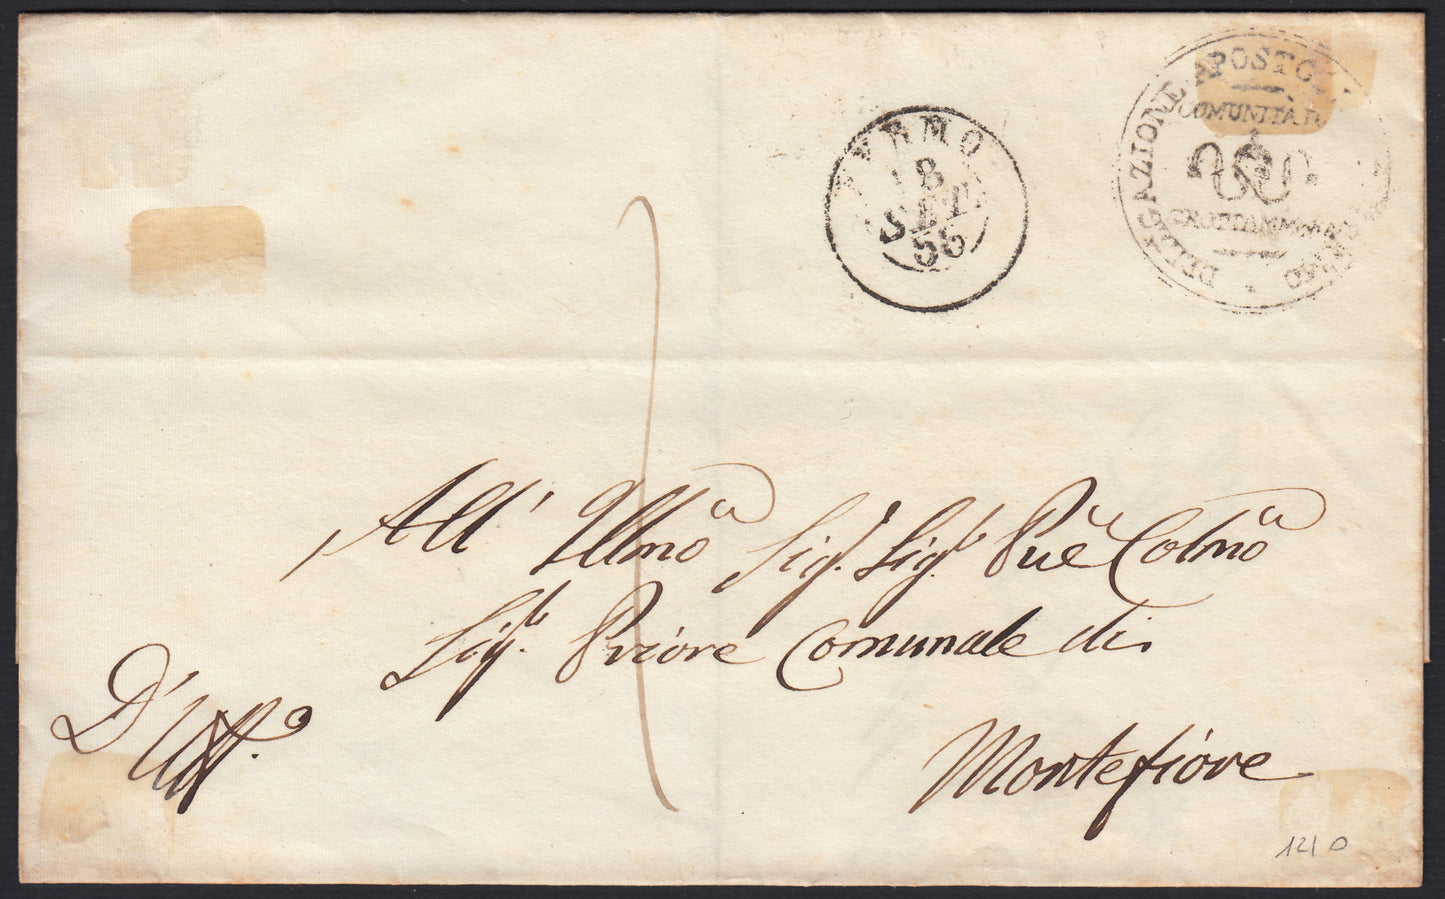 FERMO
18
SET.
56
DELEGAZIONE APOSTO
COMUNITÀ
GROTTAMMARE
All' Illmo Sig. Sig. Pne Colmo
Sig. Priore Comunale di
D'Uff.o
Montefiore
1210